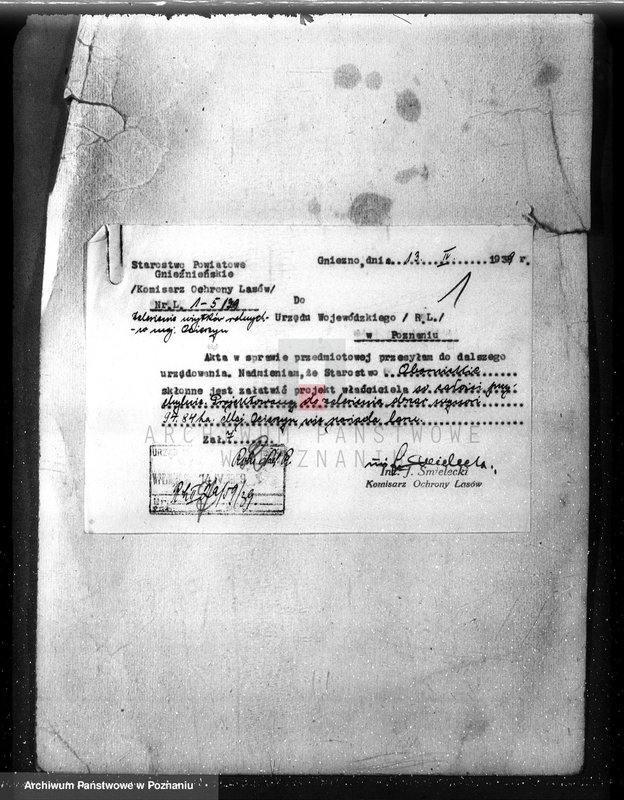 Starostwo Powiatowe
Gnieźnieńskie
/Komisarz Ochrony Lasów/
Nr.L. 1-5/39
Zalesienie użytków rolnych
w maj.
Gniezno, dnia 13. IV. 1939 r.
1
Do
Urzędu Wojewódzkiego /R.L./
w Poznaniu
Akta w sprawie przedmiotowej przesyłam do dalszego
urzędowania. Nadmieniam, że Starostwo
skłonne jest załatwić projekt właściciela w całości przy-
chylnie. Projektowany do zalesienia obszar wynosi
97.84 ha. nie posiada lasu.
Zał. 7
Inż. J. Śmielecki
Komisarz Ochrony Lasów
ARCHIWUM PAŃSTWOWE
W POZNANIU
Archiwum Państwowe w Poznaniu